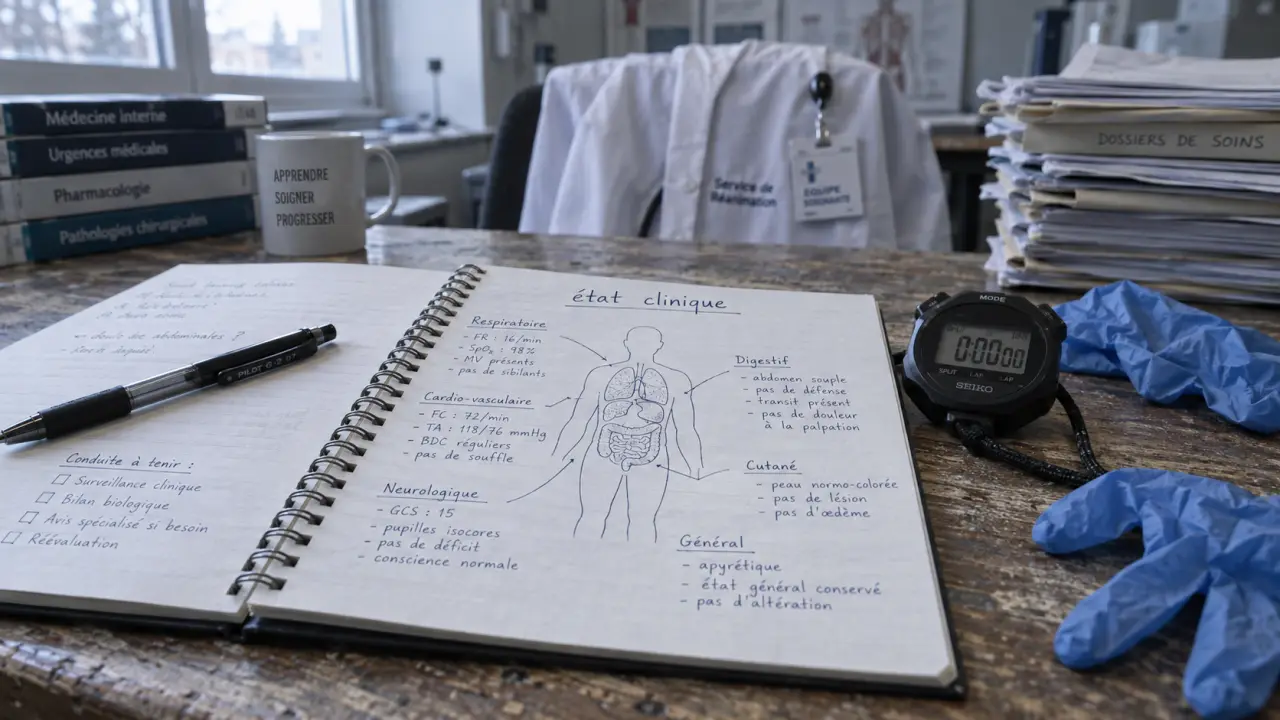 Médecine interne
Urgences médicales
Pharmacologie
Pathologies chirurgicales
APPRENDRE
SOIGNER
PROGRESSER
Service de
Réanimation
ÉQUIPE
SOIGNANTE
DOSSIERS DE SOINS
PILOT
Conduite à tenir :
Surveillance clinique
Bilan biologique
Avis spécialisé si besoin
Réévaluation
état clinique
Respiratoire
- FR : 16/min
- SpO₂ : 98%
- MV présents
- pas de sibilants
Cardio-vasculaire
- FC : 72/min
- TA : 118/76 mmHg
- BDC réguliers
- pas de souffle
Neurologique
- GCS : 15
- pupilles isocores
- pas de déficit
- conscience normale
Digestif
- abdomen souple
- pas de défense
- transit présent
- pas de douleur
à la palpation
Cutané
- peau normo-colorée
- pas de lésion
- pas d'œdème
Général
- apyrétique
- état général conservé
- pas d'altération
MODE
0:00 00
SPLIT LAP LAP
SEIKO